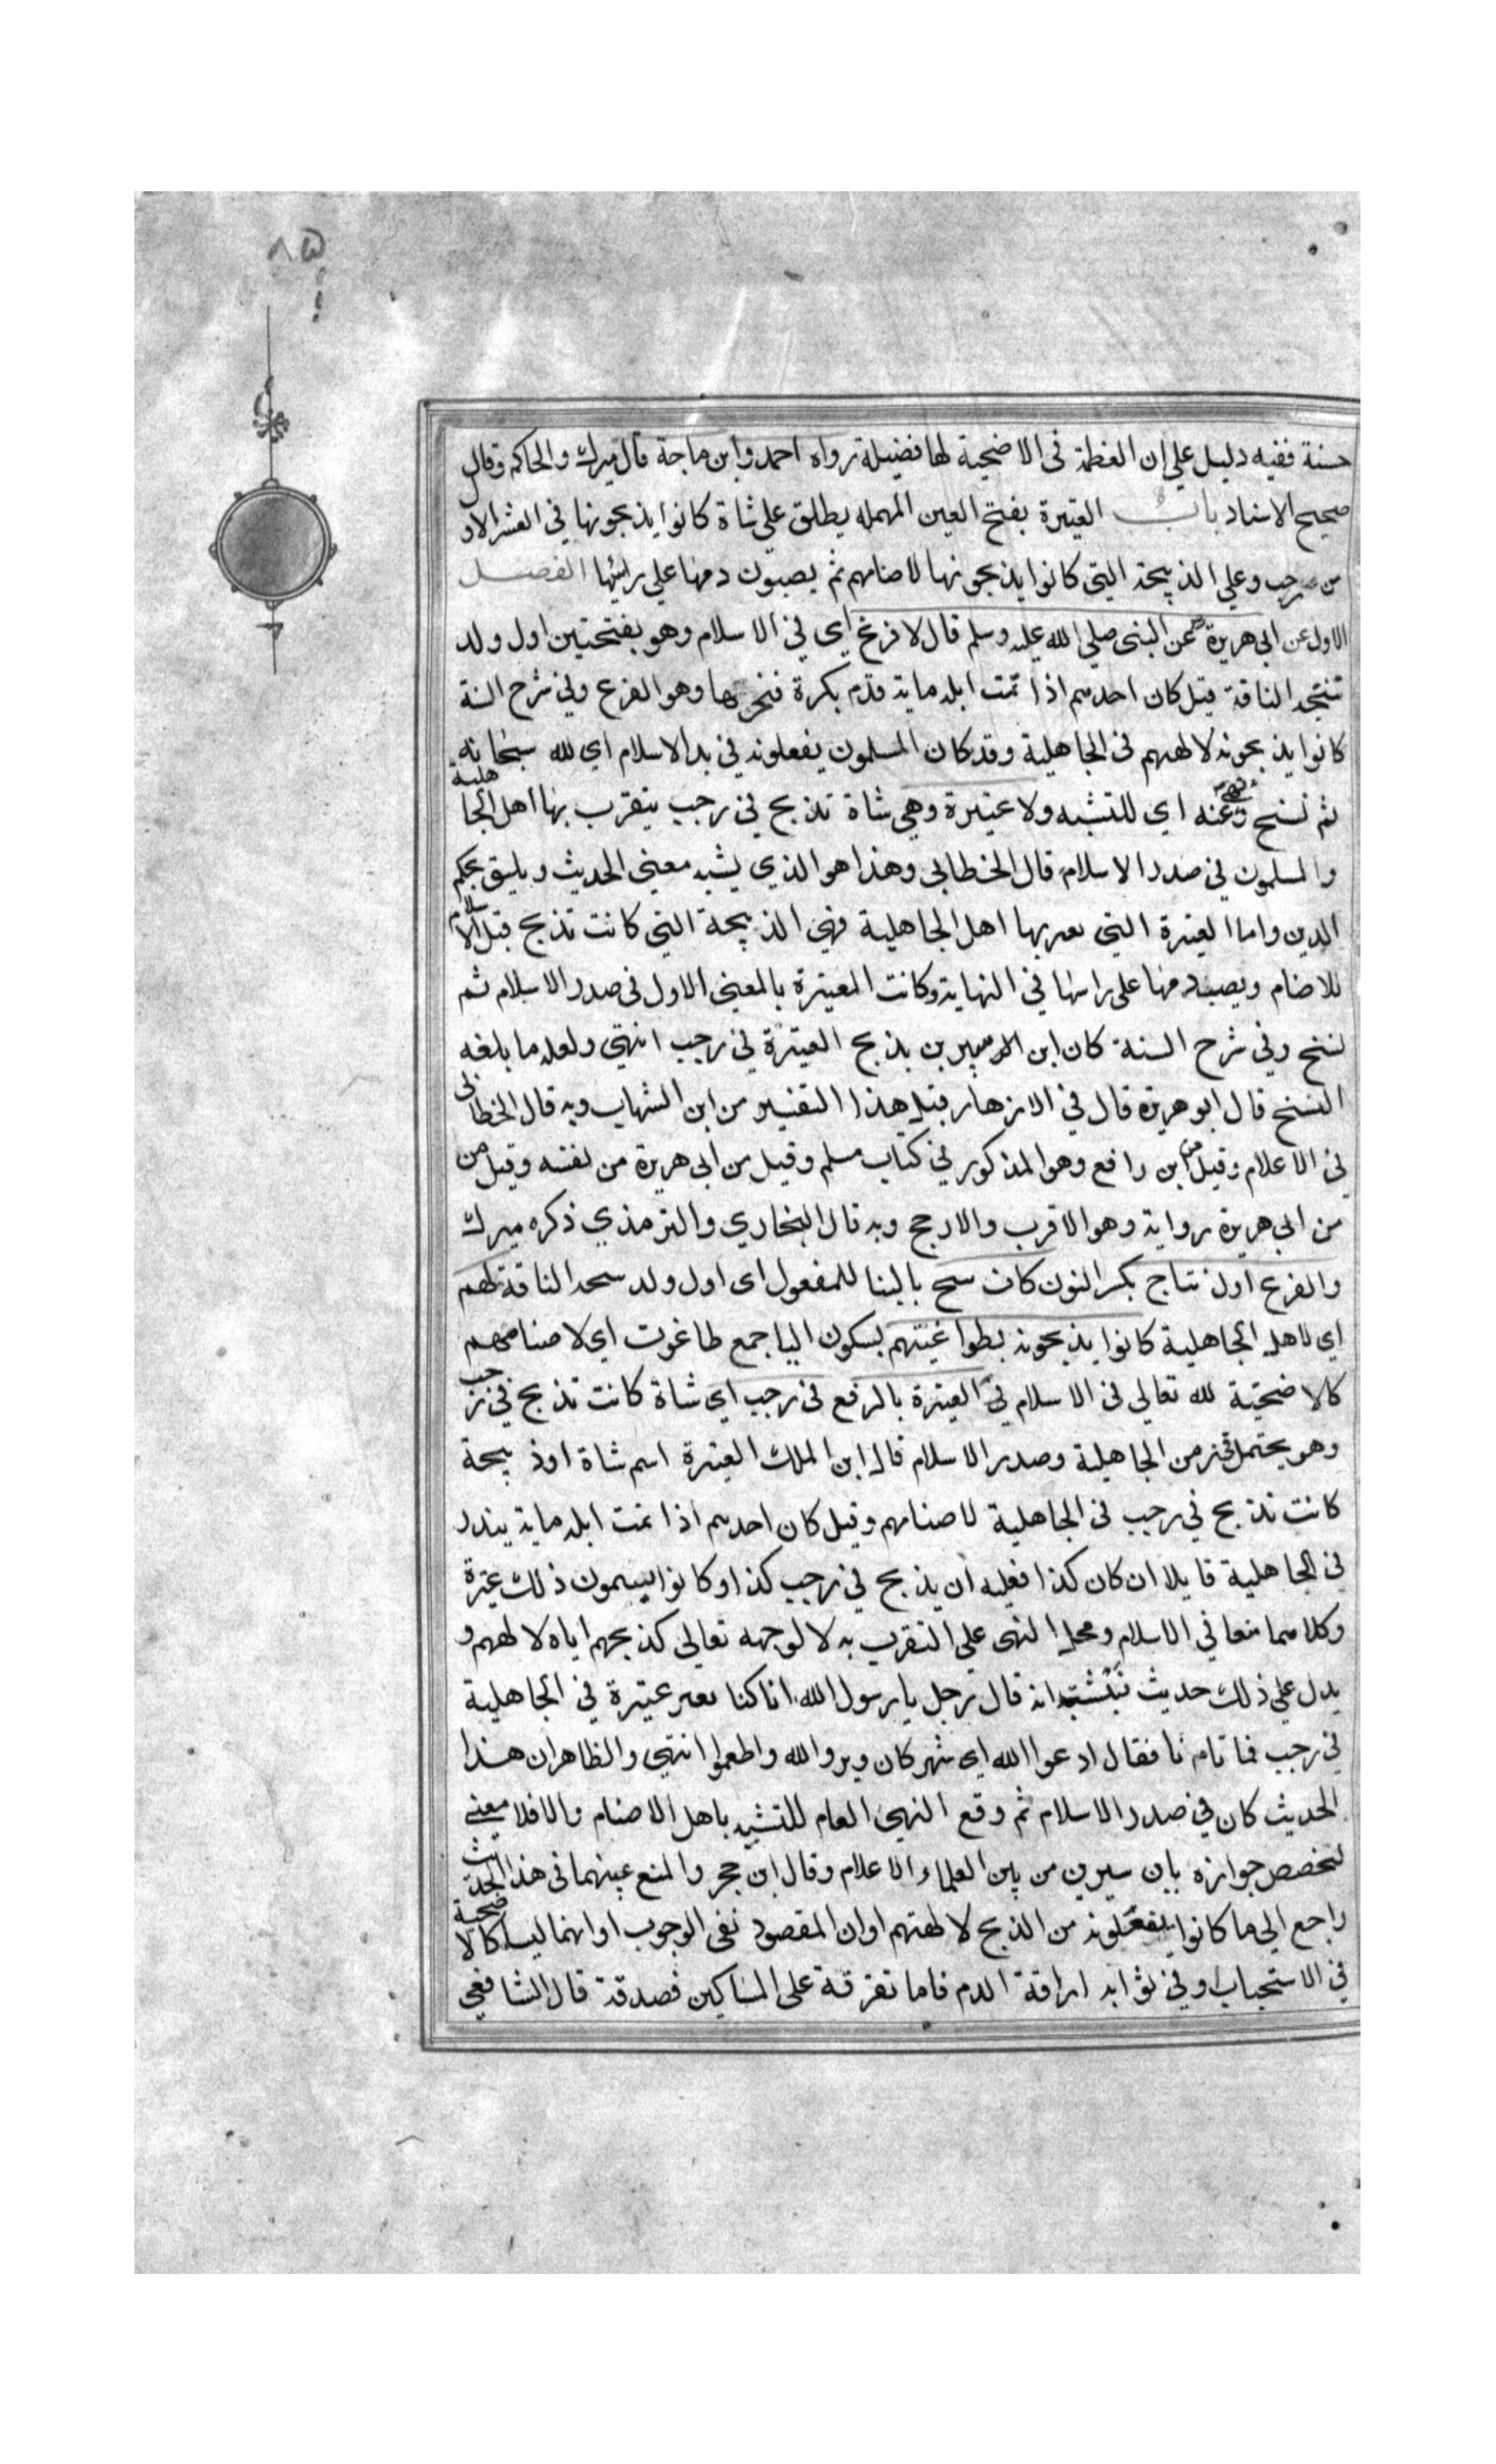 ٨٥
حسنة ففيه دليل علي ان العظمة في الاضحية لها فضيلة رواه احمد وابن ماجة قال ميرك والحاكم وقال
صحيح الاسناد باب العتيرة بفتح العين المهمله يطلق علي شاة كانوا يذبحونها في العشر الاول
من رجب وعلي الذبيحة التي كانوا يذبحونها لاصنامهم ثم يصبون دمها علي راسها الفصل
الاول عن ابي هريرة عن النبي صلي الله عليه وسلم قال لا فرع اي في الاسلام وهو بفتحتين اول ولد
تنتجه الناقة قيل كان احدهم اذا تمت ابله ماية قدم بكرة فنحرها وهو الفرع وفي شرح السنة
كانوا يذبحونه لالهتهم في الجاهلية وقد كان المسلمون يفعلونه في بدا الاسلام اي لله سبحانه
ثم نسخ ونهي عنه اي للتشبه ولا عتيرة وهي شاة تذبح في رجب يتقرب بها اهل الجاهلية
والمسلمون في صدر الاسلام قال الخطابي وهذا هو الذي يشبه معني الحديث ويليق بحكم
الدين واما العتيرة التي يعتر بها اهل الجاهلية فهي الذبيحة التي كانت تذبح قبل الاسلام
للاصنام ويصب دمها علي راسها في النهاية وكانت العتيرة بالمعني الاول في صدر الاسلام ثم
نسخ وفي شرح السنة كان ابن سيرين يذبح العتيرة في رجب انتهي ولعله ما بلغه
النسخ قال ابو هريرة قال في الازهار قيل هذا التفسير من ابن الشهاب وبه قال الخطابي
في الاعلام وقيل من ابن رافع وهو المذكور في كتاب مسلم وقيل من ابي هريرة من نفسه وقيل من
من ابي هريرة رواية وهو الاقرب والارجح وبه قال البخاري والترمذي ذكره ميرك
والفرع اول نتاج بكسر النون كان ينتج بالبنا للمفعول اي اول ولد تنتجه الناقة لهم
اي لاهل الجاهلية كانوا يذبحونه لطواغيتهم بسكون اليا جمع طاغوت اي لاصنامهم
كالاضحية لله تعالي في الاسلام والعتيرة بالرفع في رجب اي شاة كانت تذبح في رجب
وهو يحتمل زمن الجاهلية وصدر الاسلام قال ابن الملك العتيرة اسم شاة او ذبيحة
كانت تذبح في رجب في الجاهلية لاصنامهم وقيل كان احدهم اذا تمت ابله ماية ينذر
في الجاهلية قايلا ان كان كذا فعليه ان يذبح في رجب كذا وكانوا يسمون ذلك عتيرة
وكلاهما منعا في الاسلام ومحل النهي علي التقرب به لا لوجهه تعالي كذبحهم اياه لالهتهم و
يدل علي ذلك حديث نبيشة انه قال رجل يا رسول الله انا كنا نعتر عتيرة في الجاهلية
في رجب فما تامرنا فقال ادعوا الله اي شهر كان وبروا لله واطعموا انتهي والظاهر ان هذا
الحديث كان في صدر الاسلام ثم وقع النهي العام للتشبه باهل الاصنام والا فلا معني
لتخصص جوازه بابن سيرين من بين العلماء الاعلام وقال ابن حجر والمنع عنهما في هذا الحديث
راجع الي ما كانوا يفعلونه من الذبح لالهتهم او ان المقصود نفي الوجوب او انهما ليسا كالاضحية
في الاستحباب وفي ثوابه اراقة الدم فاما تفرقة علي المساكين فصدقة قال الشافعي